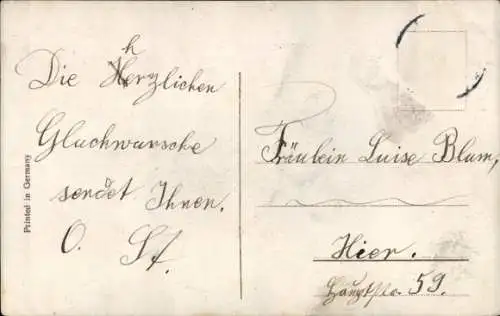 Die Herzlichen
h
Gluchwunsche
sendet Ihnen.
O. St.
Printed in Germany
Fräulein Luise Blum,
Hier.
Hauptstr. 59.